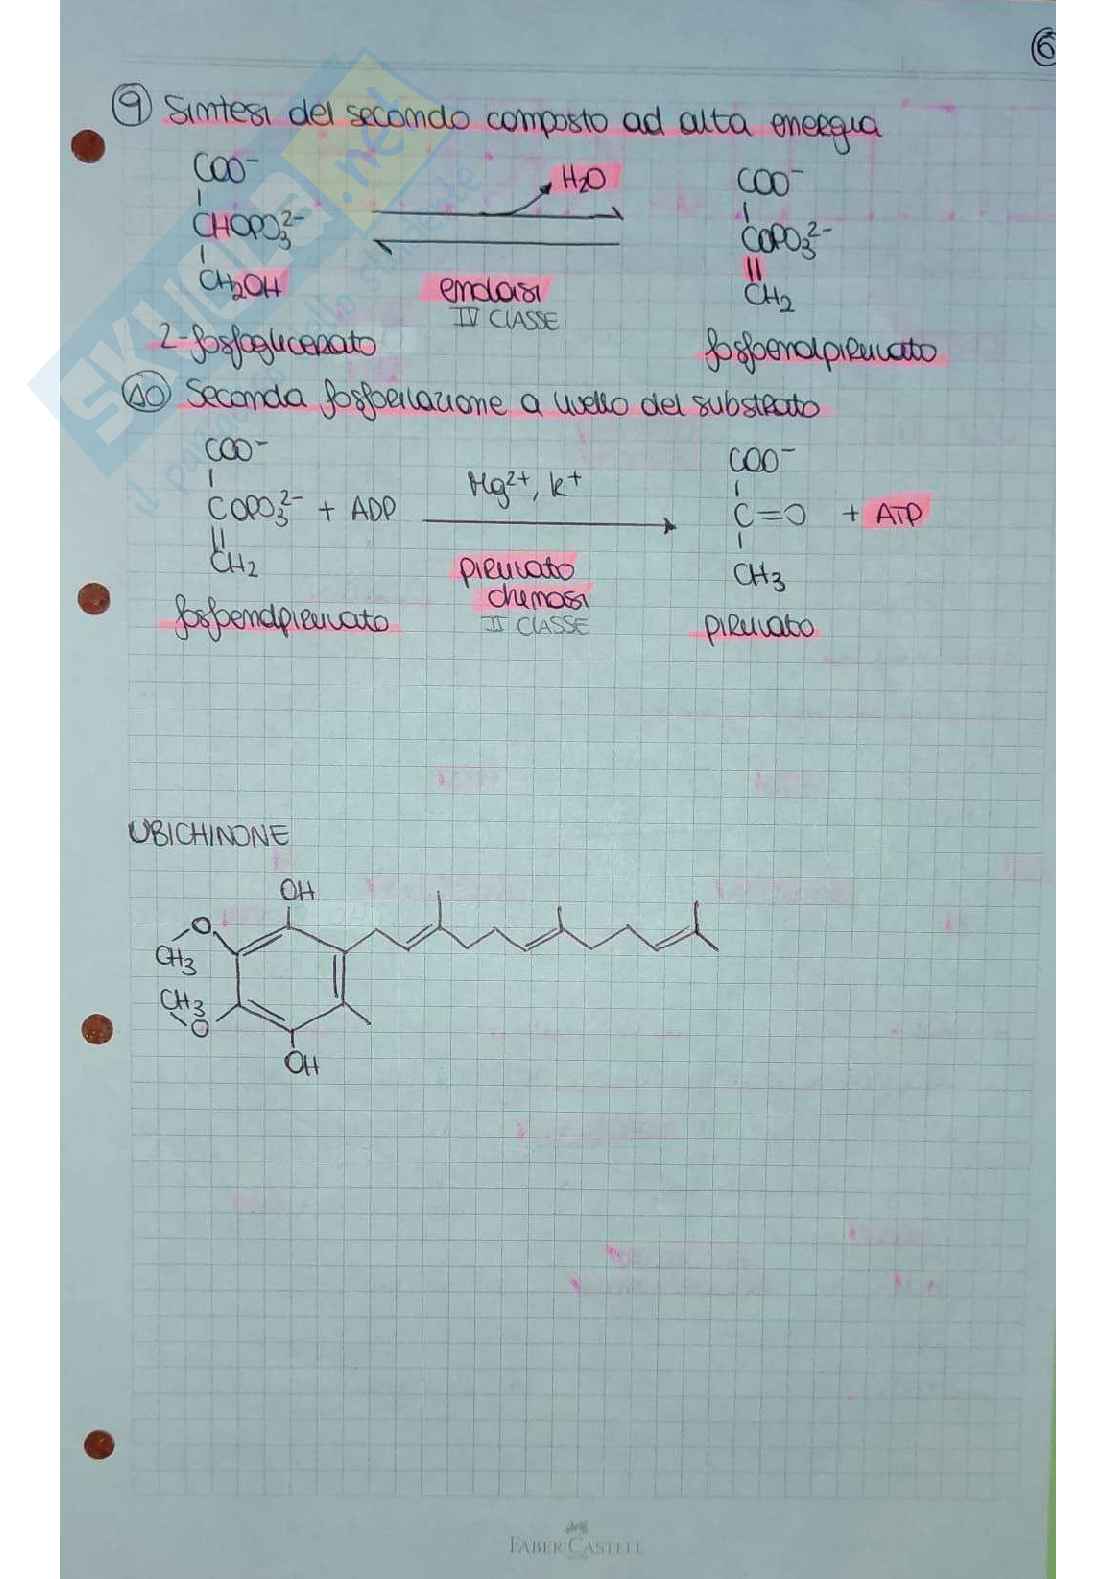 6
9 Sintesi del secondo composto ad alta energia
COO⁻
CHOPO₃²⁻
CH₂OH
2-fosfoglicerato
H₂O
enolasi
IV CLASSE
COO⁻
COPO₃²⁻
CH₂
fosfoenolpiruvato
10 Seconda fosforilazione a livello del substrato
COO⁻
COPO₃²⁻ + ADP
CH₂
fosfoenolpiruvato
Mg²⁺, K⁺
piruvato
chinasi
II CLASSE
COO⁻
C=O + ATP
CH₃
piruvato
UBICHINONE
OH
O
CH₃
CH₃
O
OH
SKUOLA.net
FABER-CASTELL